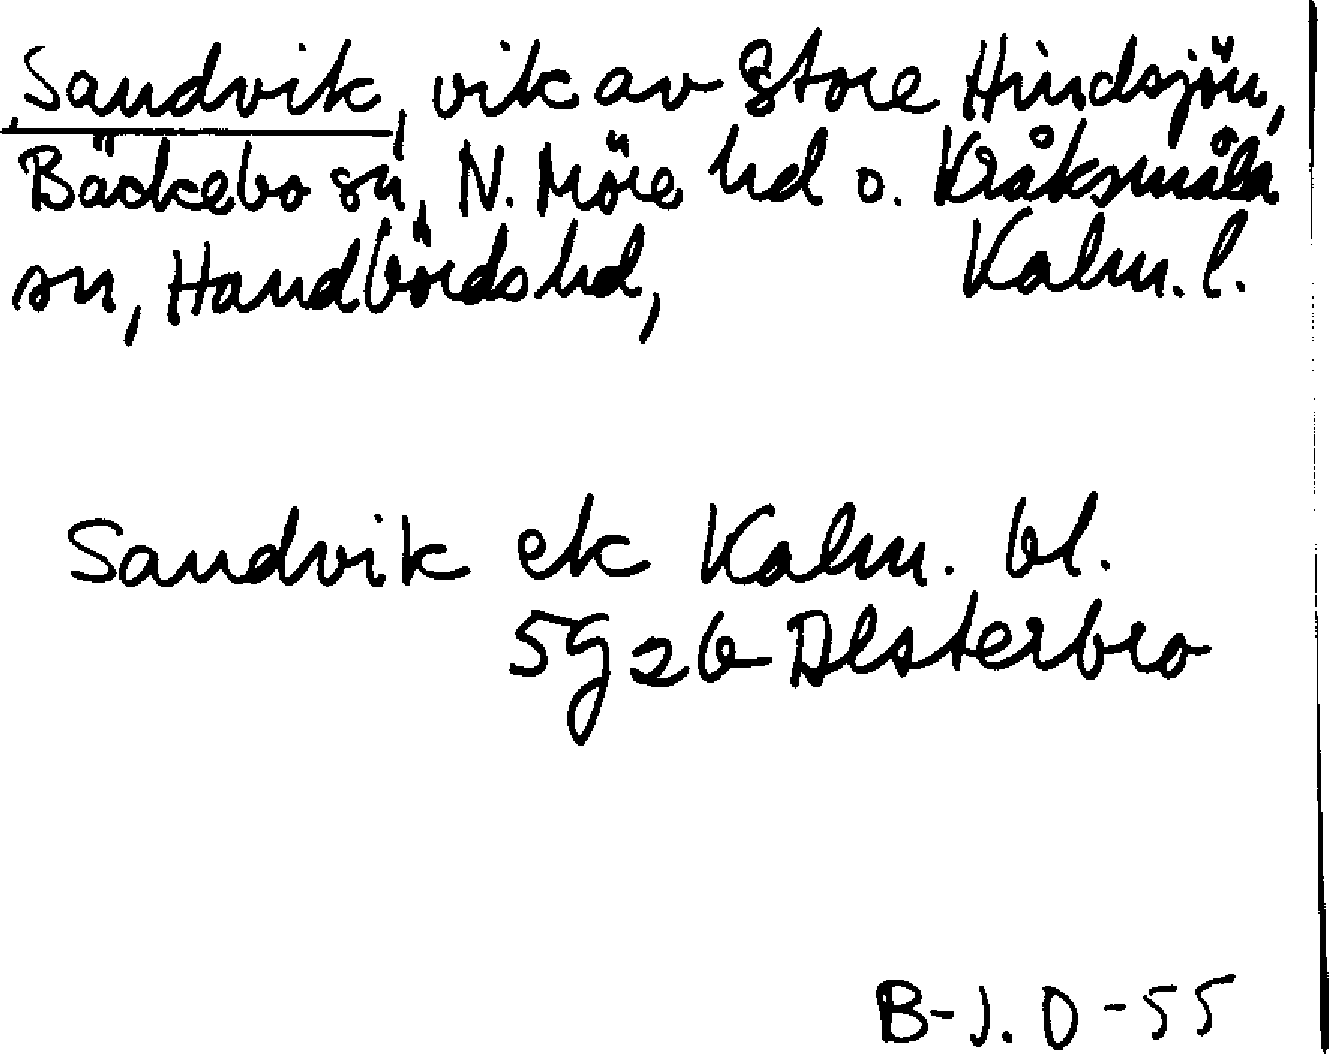 Sandvik, vik av Store Hindsjön,
Bäckebo sn, N. Möre hd o. Kråksmåla
sn, Handbörds hd, Kalm. l.
Sandvik ek Kalm. bl.
5g2b Alsterbro
B-J. O-55